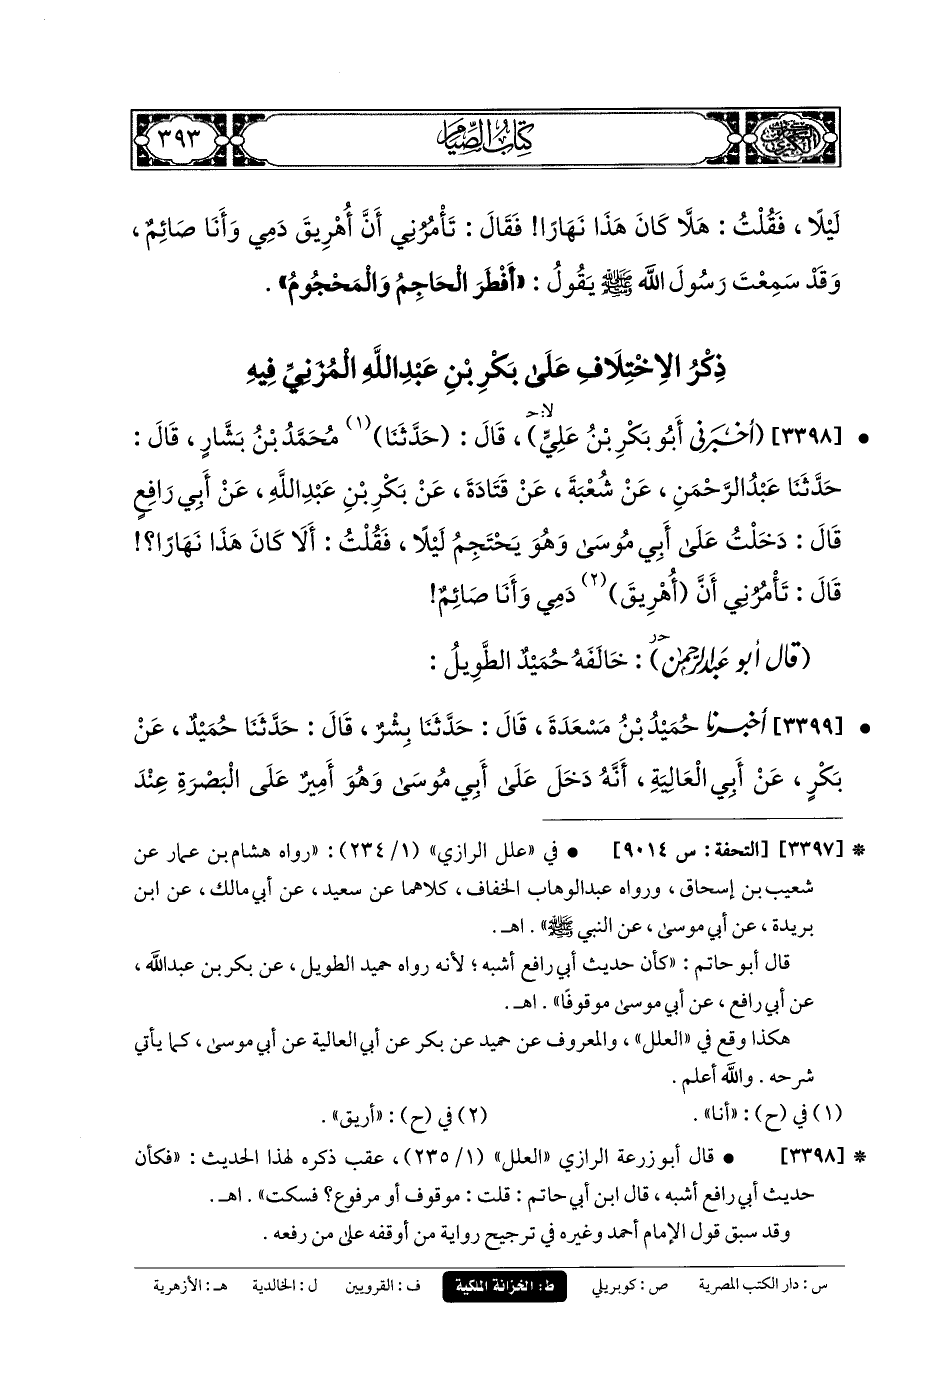 كتاب الصيام
٣٩٣
لَيْلًا ، فَقُلْتُ : هَلَّا كَانَ هَذَا نَهَارًا! فَقَالَ : تَأْمُرُنِي أَنَّ أُهْرِيقَ دَمِي وَأَنَا صَائِمٌ ،
وَقَدْ سَمِعْتَ رَسُولَ اللَّه ﷺ يَقُولُ : «أَفْطَرَ الْحَاجِمُ وَالْمَحْجُومُ» .
ذِكْرُ الِاخْتِلَافِ عَلَىٰ بَكْرِ بْنِ عَبْدِاللَّهِ الْمُزَنِيِّ فِيهِ
• [٣٣٩٨] (أَخْبَرَنِي أَبُو بَكْرِ بْنُ عَلِيٍّ)لا:حـ ، قَالَ : (حَدَّثَنَا)(١) مُحَمَّدُ بْنُ بَشَّارٍ ، قَالَ :
حَدَّثَنَا عَبْدُالرَّحْمَنِ ، عَنْ شُعْبَةَ ، عَنْ قَتَادَةَ ، عَنْ بَكْرِ بْنِ عَبْدِاللَّهِ ، عَنْ أَبِي رَافِعٍ
قَالَ : دَخَلْتُ عَلَىٰ أَبِي مُوسَىٰ وَهُوَ يَحْتَجِمُ لَيْلًا ، فَقُلْتُ : أَلَا كَانَ هَذَا نَهَارًا؟!
قَالَ : تَأْمُرُنِي أَنَّ (أُهْرِيقَ)(٢) دَمِي وَأَنَا صَائِمٌ!
(قال أبو عبدالرحمن) : خَالَفَهُ حُمَيْدٌ الطَّوِيلُ :
• [٣٣٩٩] أخبرنا حُمَيْدُ بْنُ مَسْعَدَةَ ، قَالَ : حَدَّثَنَا بِشْرٌ ، قَالَ : حَدَّثَنَا حُمَيْدٌ ، عَنْ
بَكْرٍ ، عَنْ أَبِي الْعَالِيَةِ ، أَنَّهُ دَخَلَ عَلَىٰ أَبِي مُوسَىٰ وَهُوَ أَمِيرٌ عَلَى الْبَصْرَةِ عِنْدَ
* [٣٣٩٧] [التحفة : س ٩٠١٤] • في «علل الرازي» (١/ ٢٣٤) : «رواه هشام بن عمار عن
شعيب بن إسحاق ، ورواه عبدالوهاب الخفاف ، كلاهما عن سعيد ، عن أبي مالك ، عن ابن
بريدة ، عن أبي موسىٰ ، عن النبي ﷺ» . اهـ .
قال أبو حاتم : «كأن حديث أبي رافع أشبه ؛ لأنه رواه حميد الطويل ، عن بكر بن عبدالله ،
عن أبي رافع ، عن أبي موسىٰ موقوفًا» . اهـ .
هكذا وقع في «العلل» ، والمعروف عن حميد عن بكر عن أبي العالية عن أبي موسىٰ ، كما يأتي
شرحه . والله أعلم .
(١) في (ح) : «أنا» . (٢) في (ح) : «أريق» .
* [٣٣٩٨] • قال أبو زرعة الرازي «العلل» (١/ ٢٣٥) ، عقب ذكره لهذا الحديث : «فكأن
حديث أبي رافع أشبه ، قال ابن أبي حاتم : قلت : موقوف أو مرفوع؟ فسكت» . اهـ .
وقد سبق قول الإمام أحمد وغيره في ترجيح رواية من أوقفه على من رفعه .
س : دار الكتب المصرية ص : كوبريلي ط : الخزانة الملكية ف : القرويين ل : الخالدية هـ : الأزهرية